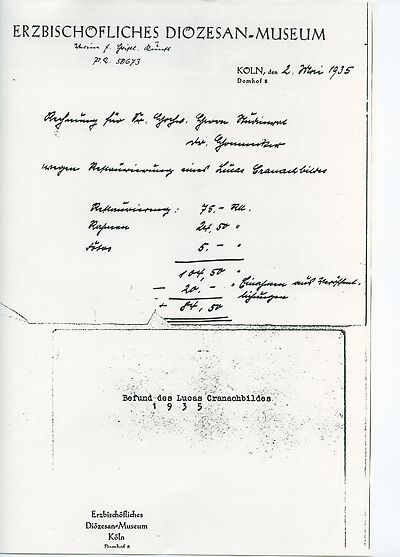 ERZBISCHÖFLICHES DIÖZESAN-MUSEUM
Verein f. Christl. Kunst
KÖLN, den 2. Mai 1935
Domhof 8
Rechnung für Sr. Hochw. Herrn Studienrat
Dr.
wegen Restaurierung eines Lucas Cranachbildes
Restaurierung: 75,- RM.
Rahmen 24,50 "
Fotos 5.- "
104,50 "
- 20.- " Einnahmen aus Veröffent-
lichungen
84,50
Befund des Lucas Cranachbildes
1935
Erzbischöfliches
Diözesan-Museum
Köln
Domhof 8